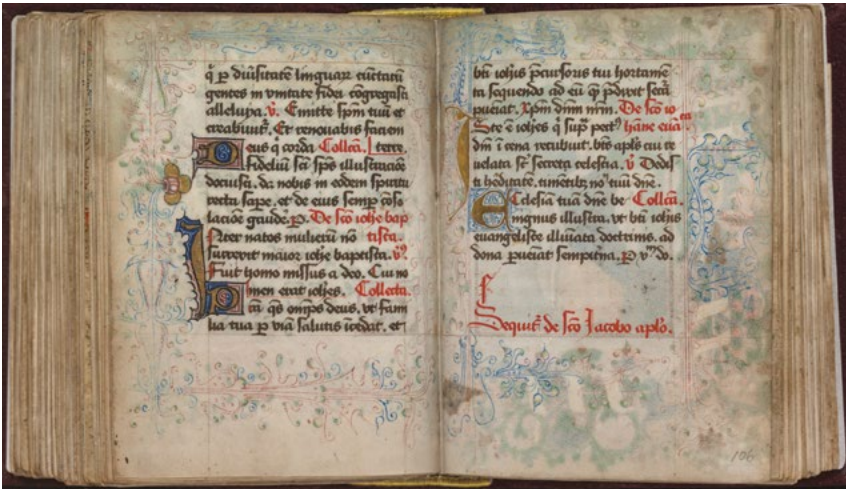 q̄ ꝑ diūsitatē linguaꝝ cūctaꝝ
gentes in vnitate fidei cōgregasti
alleluya. v̄. Emitte spm̄ tuū et
creabunt᷑. Et renouabis faciem
Deus q̄ corda Collcā. terre.
fideliū scī sps̄ illustracōe
docuisti. da nobis in eodem spiritu
recta saꝑe. et de eius semꝑ cōso
lacōe gaudē. P. De scō iohē bap
Inter natos mulierū nō tista.
surrexit maior iohē baptista. v̄.
Fuit homo missus a deo. Cui no
men erat iohēs. Collecta.
Presta q̄s omp̄s deus. vt fami
lia tua ꝑ viā salutis īcedat. et
bt̄i ioh̄is p̄cursoris tui hortamē
ta sequendo ad eū q̄ p̄dixit secā
ꝑueiat. xp̄m dn̄m nr̄m. De scō io
Iste ē ioh̄es q̄ sup̄ pect᷒ hāne euā ta
dn̄i ī cena recubuit. bt̄s apl̄s cui re
uelata st̄ secreta celestia. v̄ Dedis
ti h̄editatē. timētibꝫ no᷒ tuū dn̄e.
Ecclesiā tuā dn̄e be Collcā.
nignus illustra. vt bt̄i ioh̄is
euangeliste illuīata doctrinis. ad
dona ꝑueiat sempit̄na. P
Sequit᷑ de scō Jacobo aplō.
106